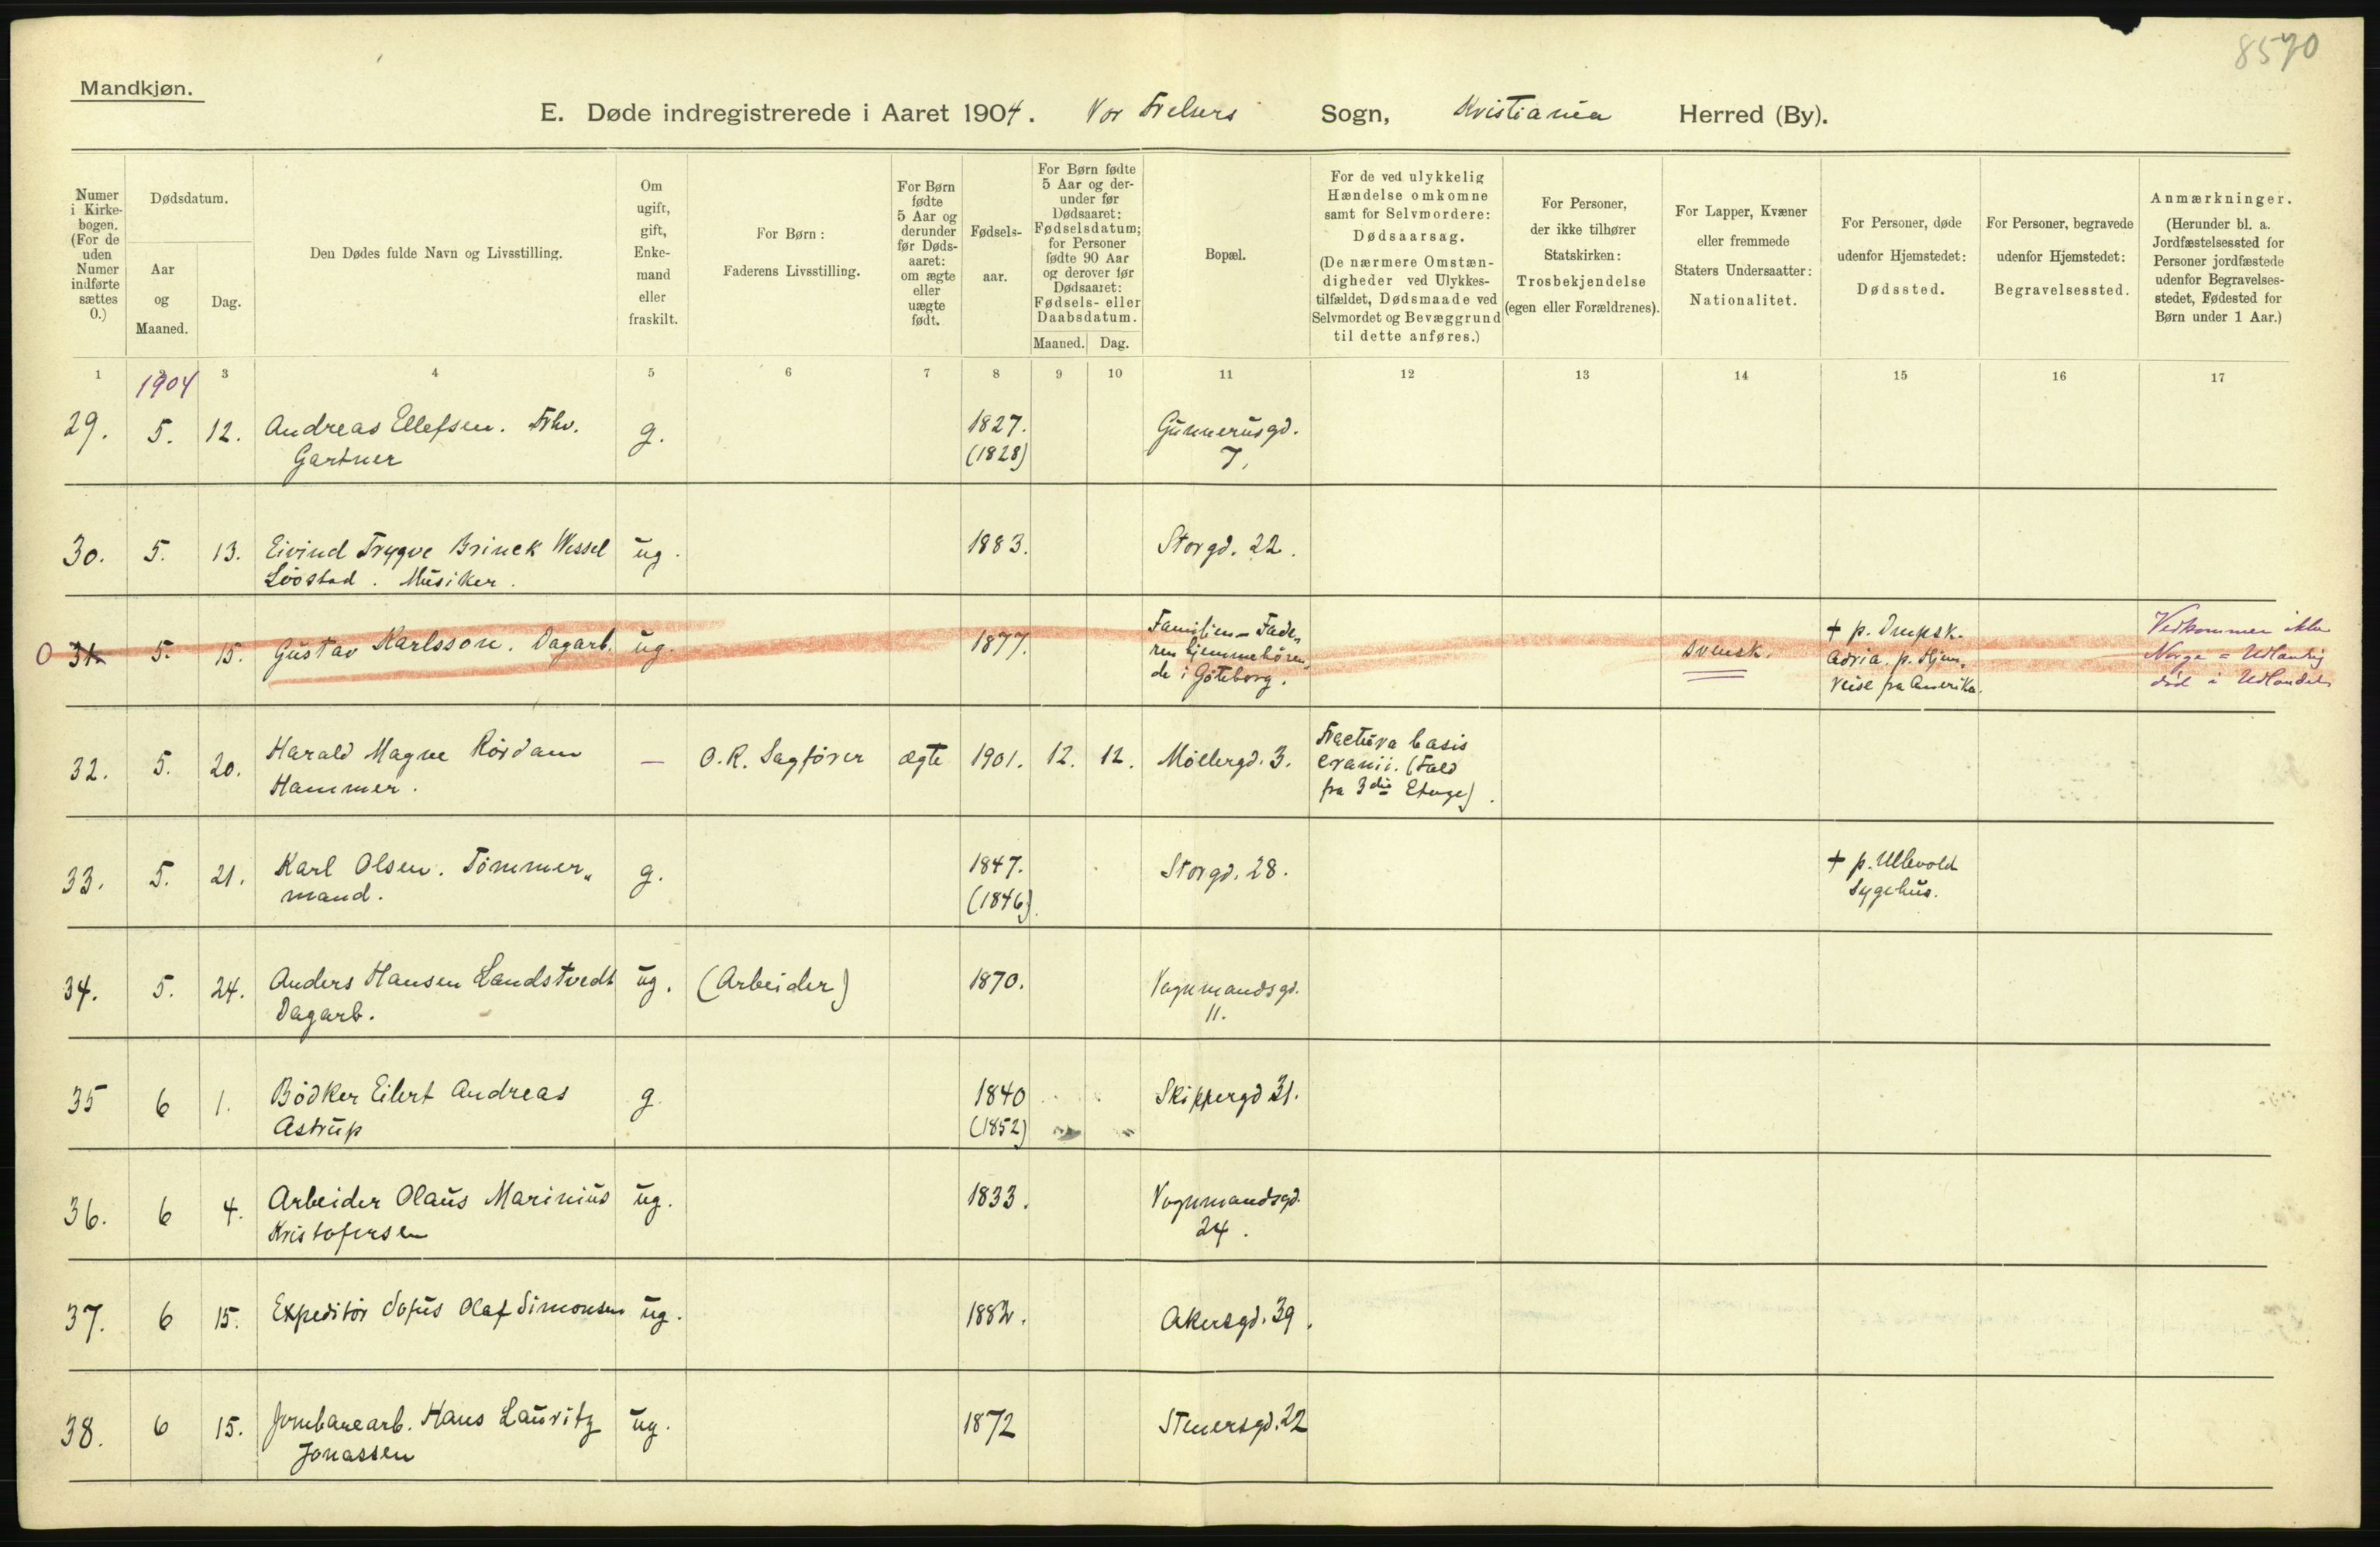 8570
Mandkjøn.
E. Døde indregistrerede i Aaret 1904. Vor Frelsers Sogn, Kristiania Herred (By).
Numer
i Kirke-
bogen.
(For de
uden
Numer
indførte
sættes
0.)
Dødsdatum.
Aar
og
Maaned.
Dag.
Den Dødes fulde Navn og Livsstilling.
Om
ugift,
gift,
Enke-
mand
eller
fraskilt.
For Børn:
Faderens Livsstilling.
For Børn
fødte
5 Aar og
derunder
før Døds-
aaret:
om ægte
eller
uægte
født.
Fødsels-
aar.
For Børn fødte
5 Aar og der-
under før
Dødsaaret:
Fødselsdatum;
for Personer
fødte 90 Aar
og derover før
Dødsaaret:
Fødsels- eller
Daabsdatum.
Maaned. Dag.
Bopæl.
For de ved ulykkelig
Hændelse omkomne
samt for Selvmordere:
Dødsaarsag.
(De nærmere Omstæn-
digheder ved Ulykkes-
tilfældet, Dødsmaade ved
Selvmordet og Bevæggrund
til dette anføres.)
For Personer,
der ikke tilhører
Statskirken:
Trosbekjendelse
(egen eller Forældrenes).
For Lapper, Kvæner
eller fremmede
Staters Undersaatter:
Nationalitet.
For Personer, døde
udenfor Hjemstedet:
Dødssted.
For Personer, begravede
udenfor Hjemstedet:
Begravelsessted.
Anmærkninger.
(Herunder bl. a.
Jordfæstelsessted for
Personer jordfæstede
udenfor Begravelses-
stedet, Fødested for
Børn under 1 Aar.)
1 2 3 4 5 6 7 8 9 10 11 12 13 14 15 16 17
1904
29. 5. 12. Andreas Ellefsen. Fhv. g. 1827. Gunnerusgd.
Gartner (1828) 7.
30. 5. 13. Eivind Trygve Brinck Wessel ug. 1883. Storgd. 22.
Lövstad. Musiker.
O 31. 5. 15. Gustav Karlsson. Dagarb. ug. 1877. Familien - Fade-
ren hjemmehören-
de i Göteborg.
svensk.
+ p. Dmpsk.
Adria. p. Hjem-
reise fra Amerika.
Vedkommer ikke
Norge = Udlænding
död i Udlandet
32. 5. 20. Harald Magne Rördam — O.R. Sagförer ægte 1901. 12. 12. Möllergd. 3.
Hammer.
Fractura basis
cranii. (Fald
fra 3die Etage).
33. 5. 21. Karl Olsen. Tömmer- g. 1847. Storgd. 28. + p. Ullevold
mand. (1846). Sygehus.
34. 5. 24. Anders Hansen Landstvedt ug. (Arbeider) 1870. Vognmandsgd.
Dagarb. 11.
35 6 1. Bödker Eilert Andreas g. 1840 Skippergd 31.
Astrup (1852)
36. 6 4. Arbeider Olaus Marinius ug. 1833. Vognmandsgd.
Kristofersen 24.
37. 6 15. Expeditör Sofus Olaf Simonsen ug. 1882. Akersgd. 39.
38. 6 15. Jernbanearb. Hans Lauritz ug. 1872 Stenersgd. 22
Jonassen